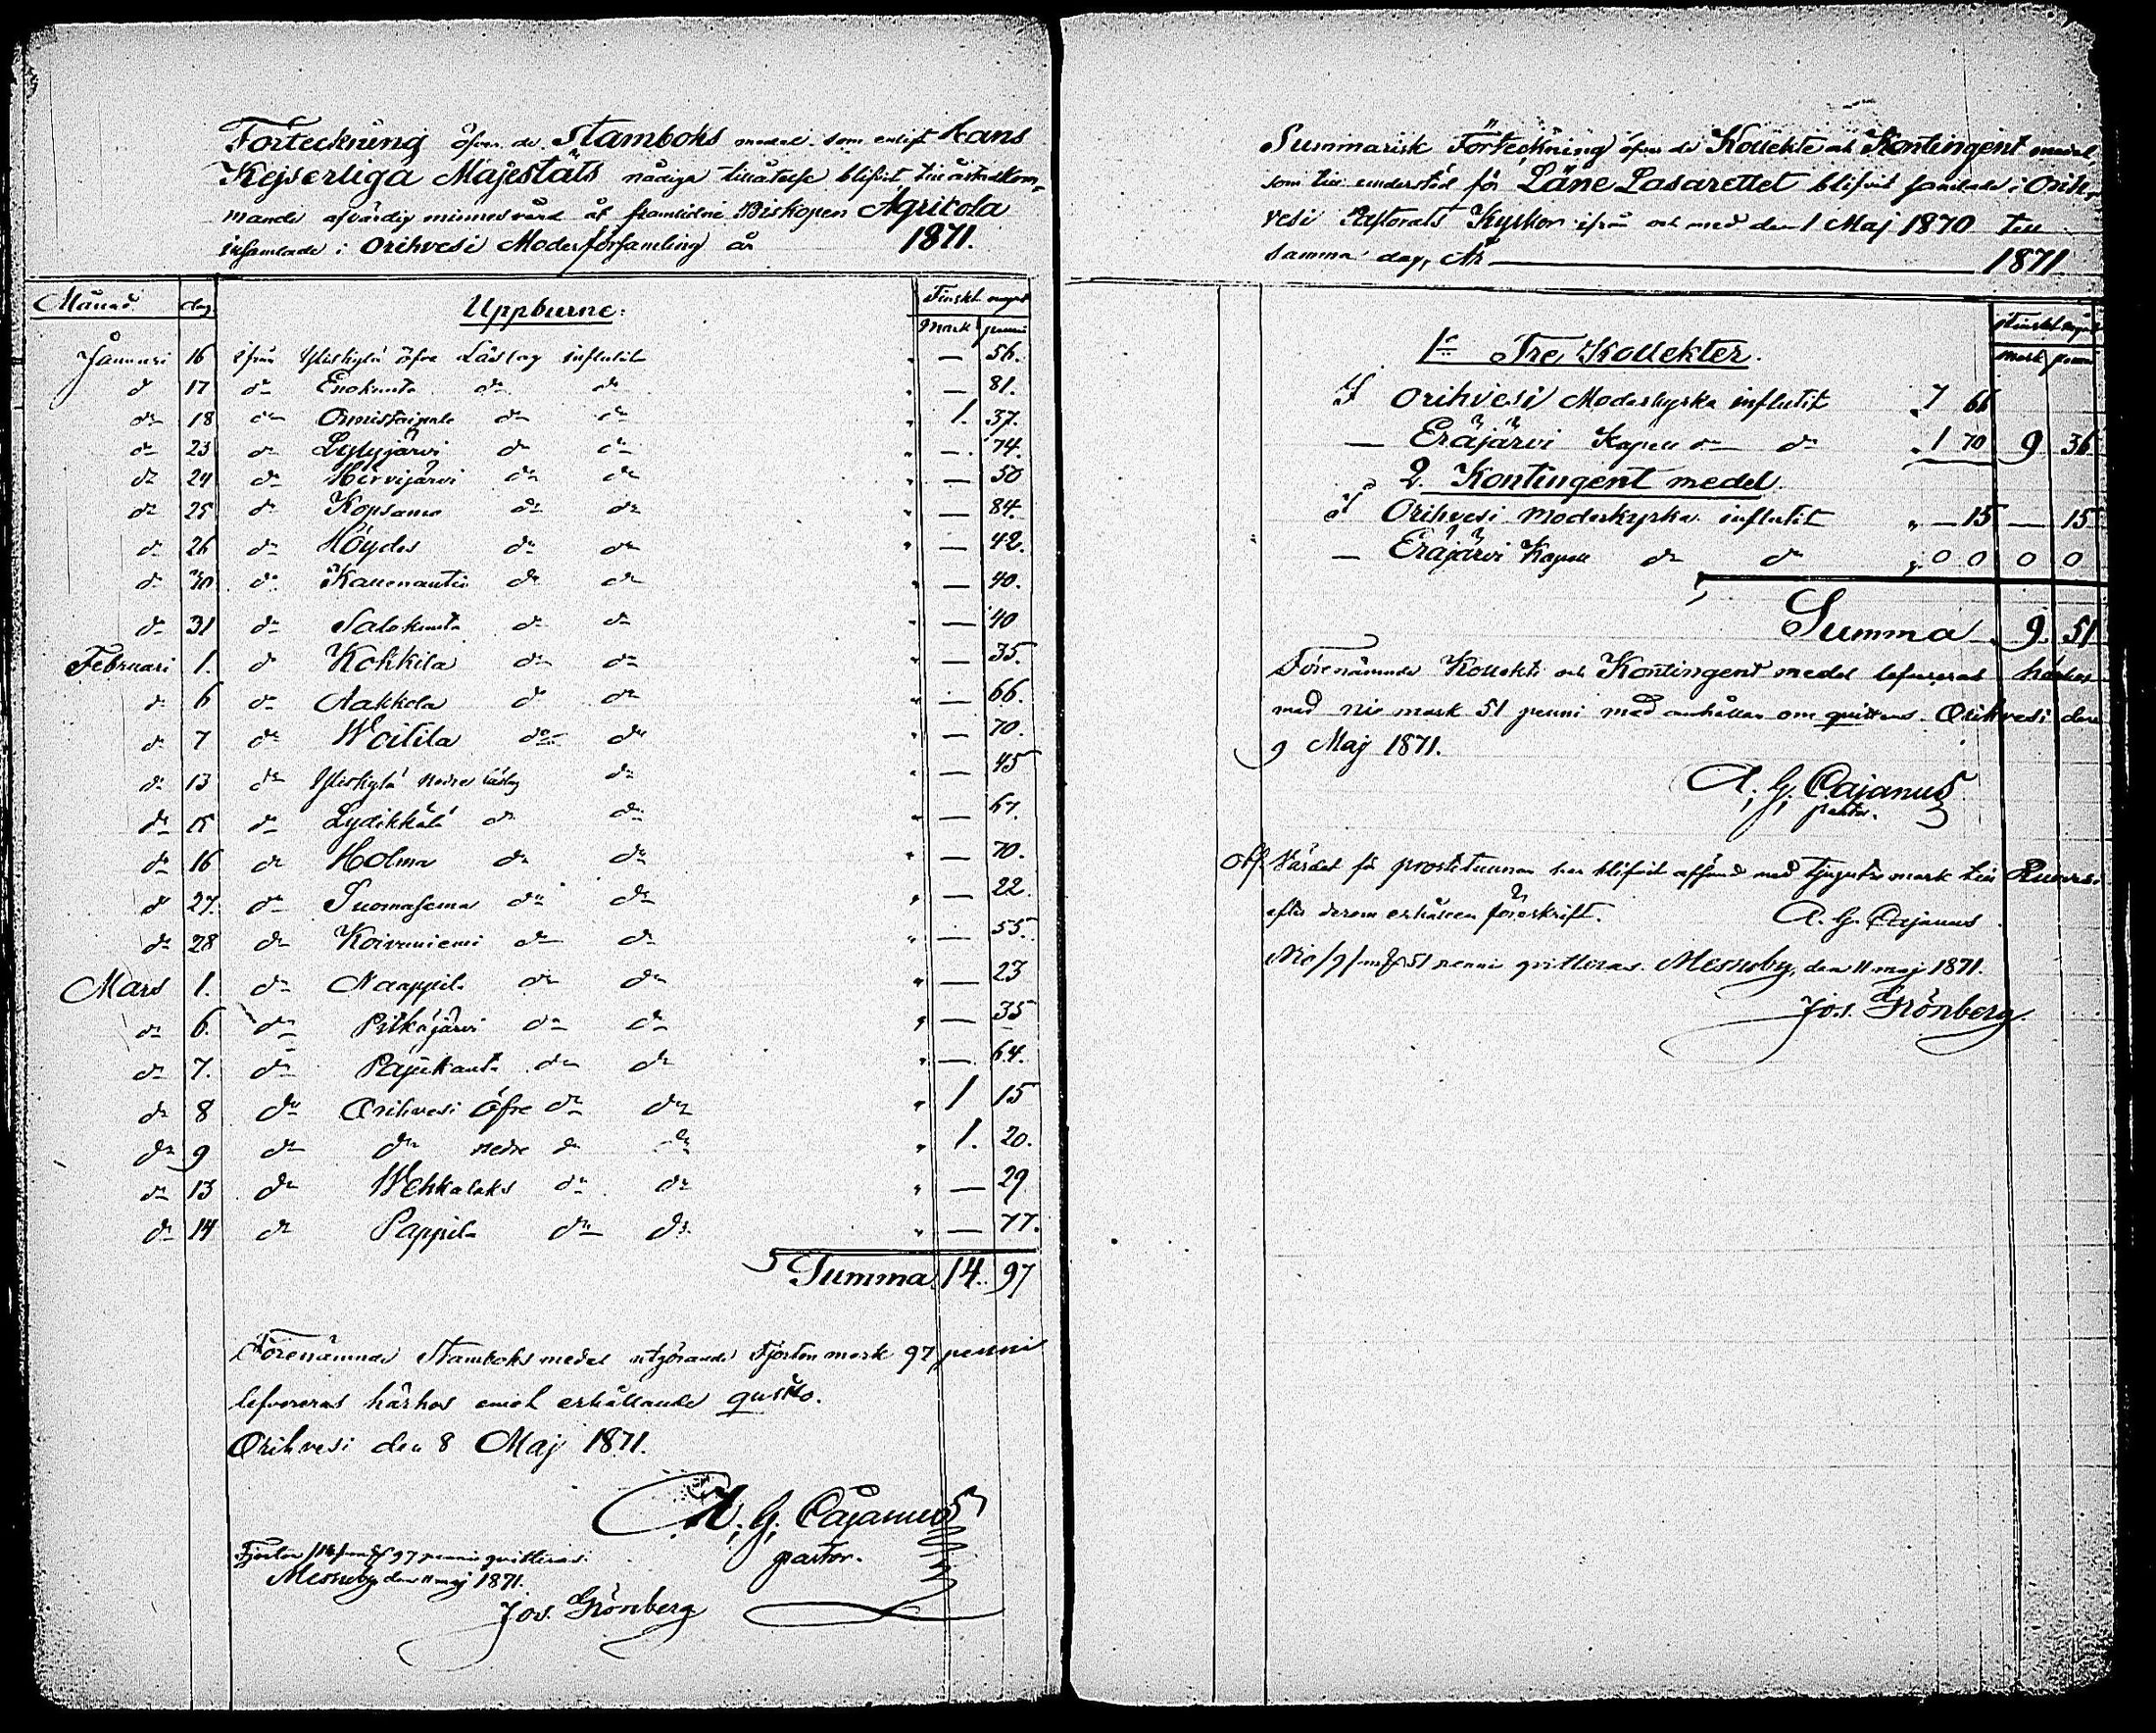 Förteckning öfver de Stamboks medel som enligt Hans
Kejserliga Majestäts nådiga tillåtelse blifvit till åstadkom-
mande af värdig minnesvård åt framlidne Biskopen Agricola
insamlade i Orihvesi Moderförsamling år 1871.
Månad. dag. Uppburne: Finskt mynt
Mark penni
Januari 16 ifrån Yliskylä öfre Läslag influtit " — 56.
d 17 dn Enokunta dn dn " — 81.
dn 18 dn Onnistaipale dn dn " 1. 37.
dn 23 dn Lyly­järvi dn dn " — 74.
dn 24 dn Hirvijärvi dn dn " — 50
dn 25 dn Kopsamo dn dn " — 84.
dn 26 dn Höydes dn dn " — 42.
dn 30 dn Kallenautio dn dn " — 40.
dn 31 dn Salokunta dn dn " — 40
Februari 1. d Kokkila dn dn " — 35.
dn 6 dn Aakkola dn dn " — 66.
dn 7 dn Woitila dn dn " — 70.
dn 13 dn Yliskylä nedre läslag dn " — 45
dn 15 dn Lydikkälä dn dn " — 67.
dn 16 dn Holma dn dn " — 70.
dn 27. dn Suomasema dn dn " — 22.
dn 28 dn Koivuniemi dn dn " — 55.
Mars 1. dn Naappila dn dn " — 23
dn 6. dn Pitkäjärvi dn dn " — 35
dn 7. dn Pajukanta dn dn " — 64.
dn 8 dn Orihvesi Öfre dn dn " 1 15
dn 9 dn dn nedre dn dn " 1. 20.
dn 13 dn Wehkalaks dn dn " — 29
dn 14 dn Pappila dn dn " — 77.
Summa 14. 97
Förenämnde Stamboks medel utgörande Fjorton mark 97 penni
lefvereras härhos emot erhållande quitto.
Orihvesi den 8 Maj 1871.
A. G. Cajanus
pastor.
Fjorton /14/ m 97 penni qvitteras.
Messuby den 11 maj 1871.
Jos. Grönberg
Summarisk Förteckning öfver de Kollekte och Kontingent medel
som till understöd för Läne Lasarettet blifvit samlade i Orih-
vesi Pastorats Kyrkor ifrån och med den 1 Maj 1870 till
samma dag, År 1871
Finskt mynt
mark penni
1o Tre Kollekter.
I Orihvesi Moderkyrka influtit " 7 66
— Eräjärvi Kapell dn dn " 1 70 9 36
2. Kontingent medel.
I Orihvesi moderkyrka influtit " — 15 — 15
— Eräjärvi Kapell dn dn " 0 0 0 0
Summa 9. 51
Förenämnde Kollekte och Kontingent medel lefvereras härhos
med nio mark 51 penni med anhållan om quittens. Orihvesi den
9 Maj 1871.
A. G. Cajanus
pastor.
Obs. Värdet för prosttunnan har blifvit affänd med tjugutre mark till
efter derom erhållen föreskrift. A. G. Cajanus
Nio /9/ m 51 penni qvitteras. Messuby, den 11 maj 1871.
Jos. Grönberg.